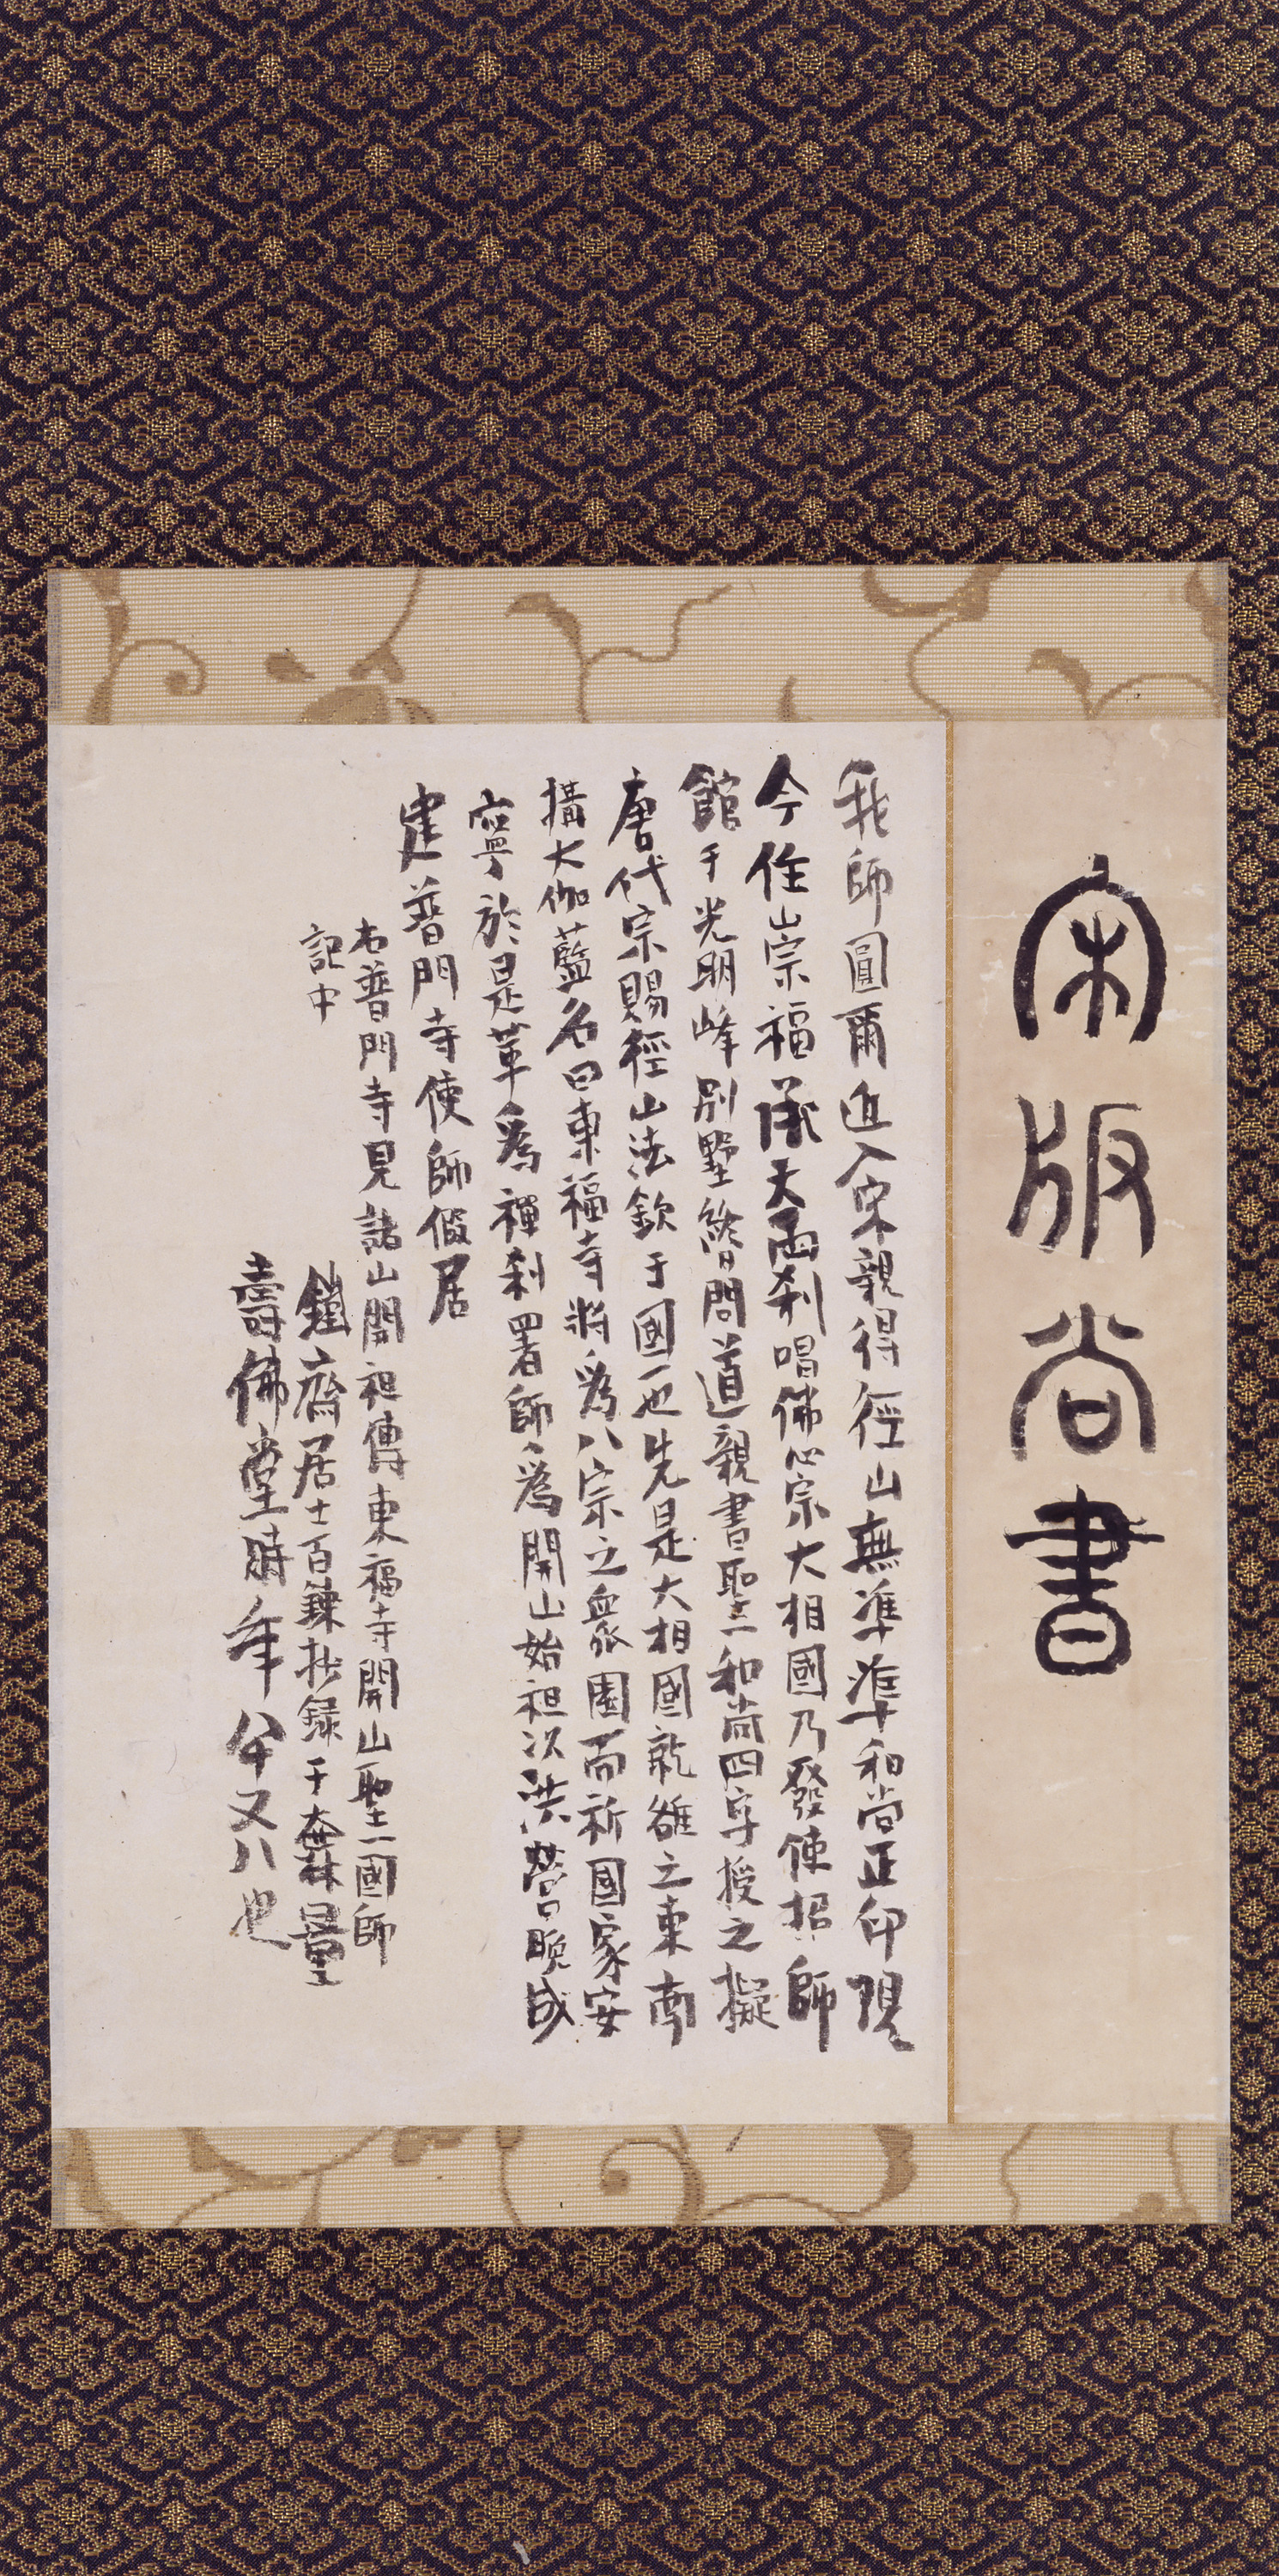 宋版尚書
我師圓爾近入宋親得徑山無準準和尚正印現
今住崇福承天兩刹唱佛心宗大相國乃發使招師
館于光明峰別墅問道親書聖一和尚四字授之擬
唐代宗賜徑山法欽于國一也先是大相國就雒之東南
搆大伽藍名曰東福寺將爲八宗之衆園而祈國家安
寧於是革爲禪刹署師爲開山始祖次洪營晚成
建普門寺使師假居
右普門寺見諸山開祖傳東福寺開山聖一國師
記中
鐵齋居士百鍊抄録于無量
壽佛堂時年八十又八也